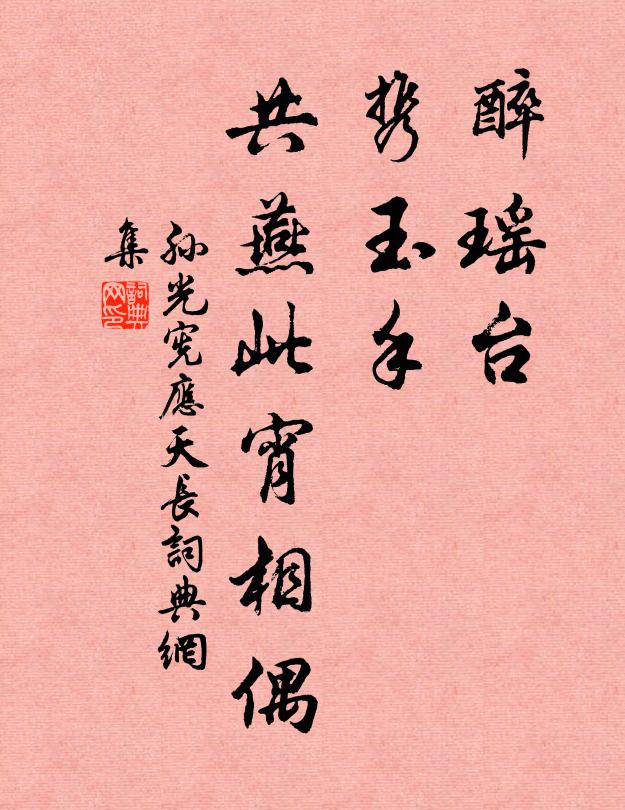 醉瑶台
携玉手
共燕此宵相偶
孙光宪應天長詞典網
集
詞典
网印